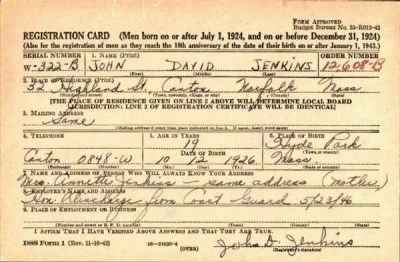 FORM APPROVED
Budget Bureau No. 33-R012-42
REGISTRATION CARD (Men born on or after July 1, 1924, and on or before December 31, 1924)
(Also for the registration of men as they reach the 18th anniversary of the date of their birth on or after January 1, 1943.)
SERIAL NUMBER 1. NAME (Print) ORDER NUMBER
W-322-B JOHN DAVID JENKINS 12,608-B
(First) (Middle) (Last)
2. PLACE OF RESIDENCE (Print)
32 Highland St. Canton Norfolk Mass
(Number and street) (Town, township, village, or city) (County) (State)
[THE PLACE OF RESIDENCE GIVEN ON LINE 2 ABOVE WILL DETERMINE LOCAL BOARD
JURISDICTION; LINE 2 OF REGISTRATION CERTIFICATE WILL BE IDENTICAL]
3. MAILING ADDRESS
Same
4. TELEPHONE 5. AGE IN YEARS 6. PLACE OF BIRTH
19 Hyde Park
DATE OF BIRTH
Canton 0848-W 10 12 1926 Mass.
(Exchange) (Number) (Mo.) (Day) (Yr.) (State or country)
7. NAME AND ADDRESS OF PERSON WHO WILL ALWAYS KNOW YOUR ADDRESS
Mrs. Annette Jenkins - same address (mother)
Hon. Discharge from Coast Guard 5/23/46
9. PLACE OF EMPLOYMENT OR BUSINESS
I AFFIRM THAT I HAVE VERIFIED ABOVE ANSWERS AND THAT THEY ARE TRUE.
DSS Form 1 (Rev. 11-16-42) (OVER) John D. Jenkins